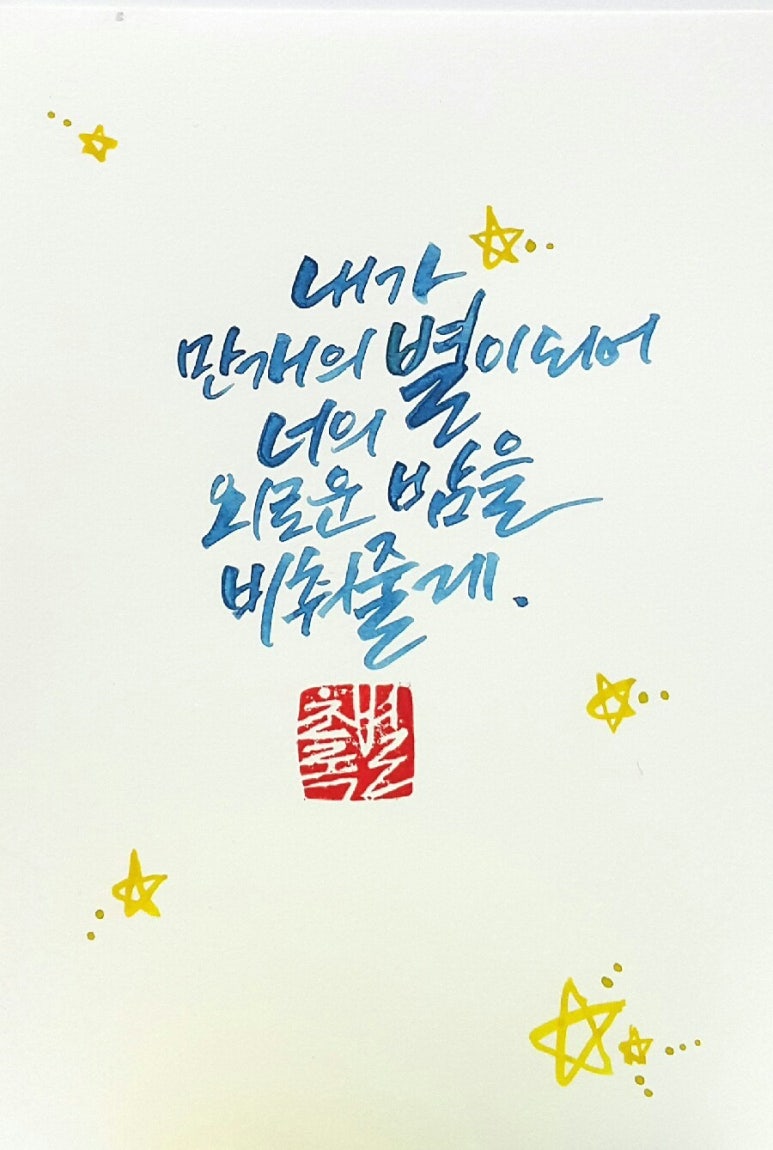 내가
만개의 별이 되어
너의
외로운 밤을
비춰줄게.
초록별